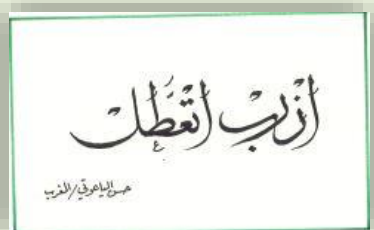 أزرب أتعطّل
حسن الياعوتي / المغرب